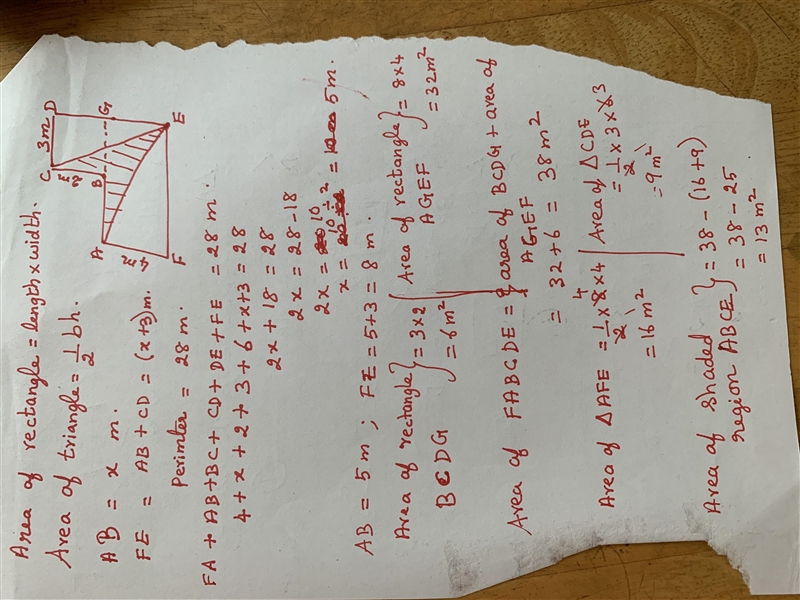 Area of rectangle = length x width.
Area of triangle = 1/2 bh.
AB = x m.
FE = AB + CD = (x+3)m.
Perimter = 28 m.
C 3m D
2m
B G
A
4m
F E
FA + AB + BC + CD + DE + FE = 28 m.
4 + x + 2 + 3 + 6 + x + 3 = 28
2x + 18 = 28
2x = 28 - 18
2x = 10
x = 10 ÷ 2 = 5 m.
AB = 5 m ; FE = 5+3 = 8 m.
Area of rectangle BCDG } = 3 x 2
= 6 m²
Area of rectangle AGEF } = 8 x 4
= 32 m²
Area of FABCDE = area of BCDG + area of AGEF
= 32 + 6 = 38 m²
Area of △AFE = 1/2 x 8 x 4
4
= 16 m²
Area of △CDE
= 1/2 x 3 x 2 3
= 9 m²
Area of shaded region ABCE } = 38 - (16+9)
= 38 - 25
= 13 m²